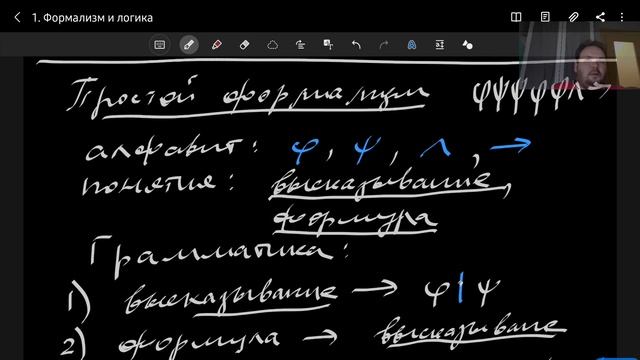 1. Формализм и логика
Простой формализм φψψφφΛ→
алфавит: φ, ψ, Λ, →
понятия: высказывание,
формула
Грамматика:
1) высказывание → φ | ψ
2) формула → высказывание